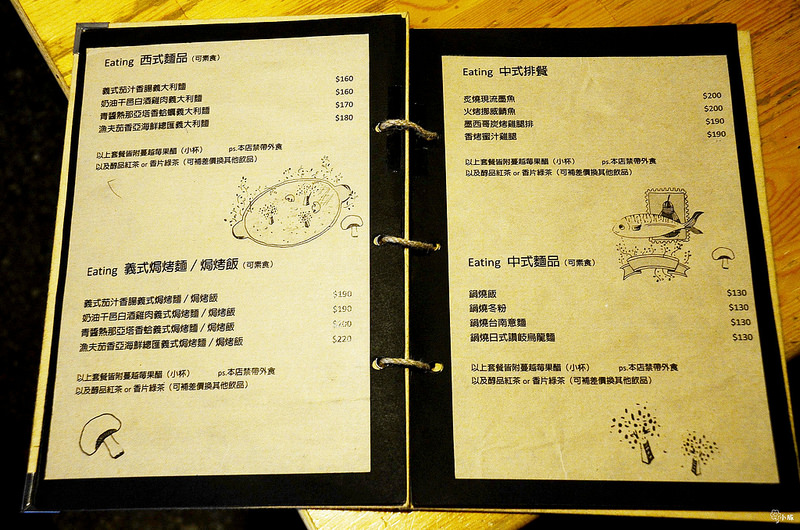 Eating 西式麵品（可素食）
義式茄汁香腸義大利麵 $160
奶油干邑白酒雞肉義大利麵 $160
青醬熱那亞塔香蛤蠣義大利麵 $170
漁夫茄香亞海鮮總匯義大利麵 $180
以上套餐皆附蔓越莓果醋（小杯） ps.本店禁帶外食
以及醇品紅茶 or 香片綠茶（可補差價換其他飲品）
Eating 義式焗烤麵 / 焗烤飯（可素食）
義式茄汁香腸義式焗烤麵 / 焗烤飯 $190
奶油干邑白酒雞肉義式焗烤麵 / 焗烤飯 $190
青醬熱那亞塔香蛤義式焗烤麵 / 焗烤飯 $200
漁夫茄香亞海鮮總匯義式焗烤麵 / 焗烤飯 $220
以上套餐皆附蔓越莓果醋（小杯） ps.本店禁帶外食
以及醇品紅茶 or 香片綠茶（可補差價換其他飲品）
Eating 中式排餐
炙燒現流墨魚 $200
火烤挪威鯖魚 $200
墨西哥炭烤雞腿排 $190
香烤蜜汁雞腿 $190
以上套餐皆附蔓越莓果醋（小杯） ps.本店禁帶外食
以及醇品紅茶 or 香片綠茶（可補差價換其他飲品）
Eating 中式麵品（可素食）
鍋燒飯 $130
鍋燒冬粉 $130
鍋燒台南意麵 $130
鍋燒日式讚岐烏龍麵 $130
以上套餐皆附蔓越莓果醋（小杯） ps.本店禁帶外食
以及醇品紅茶 or 香片綠茶（可補差價換其他飲品）